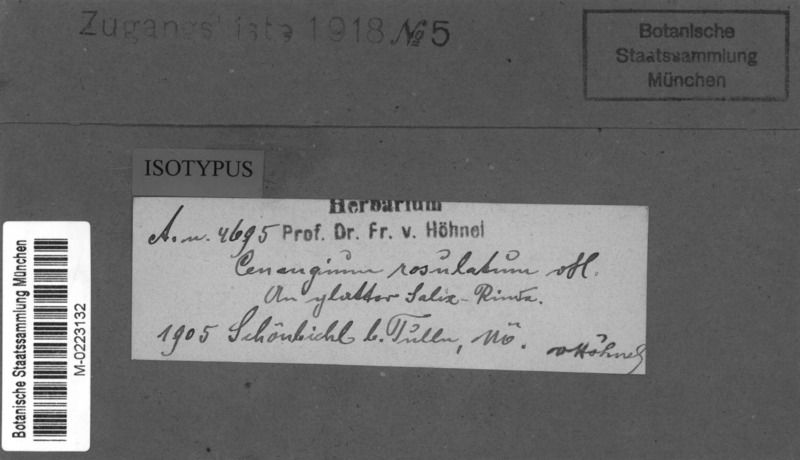 Zugangsliste 1918 № 5
Botanische
Staatssammlung
München
ISOTYPUS
Herbarium
A. n. 4695 Prof. Dr. Fr. v. Höhnel
Cenangium rosulatum vH.
An glatter Salix-Rinde.
1905 Schönbichl b. Tulln, NÖ.
v Höhnel
Botanische Staatssammlung München
M-0223132